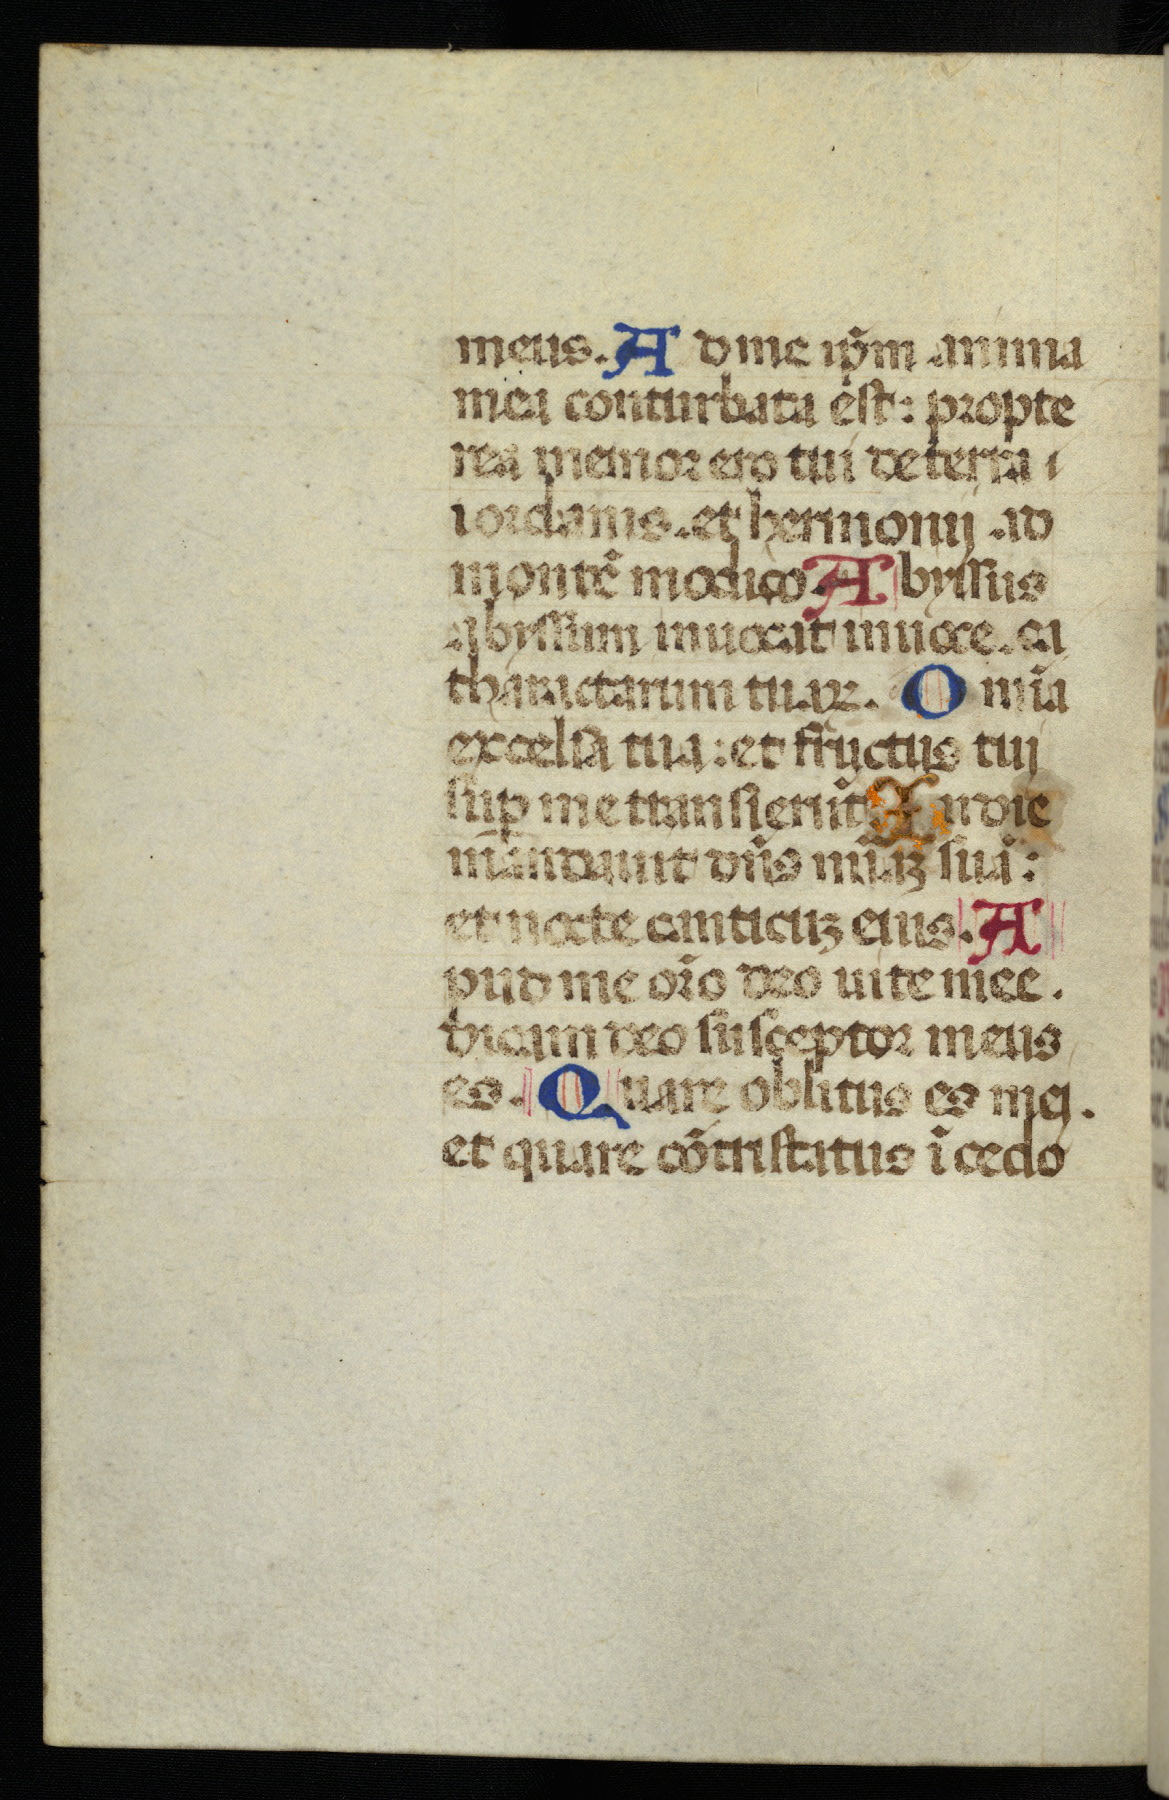 meus. A d me ip̄m anima
mea conturbata est: propte
rea memor ero tui de terra i
iordanis. et hermonij ad
montē modico. A byssus
abyssum inuocat in uoce. ca
tharactarum tuaꝝ. O mīa
excelsa tua: et fluctus tui
suꝑ me transierūt I n die
mādauit dn̄s mīaꝫ suā:
et nocte canticuꝫ eius. A
pud me orō deo uite mee.
dicam deo susceptor meus
es. Q uare oblitus es mei.
et quare cōtristatus īcedo